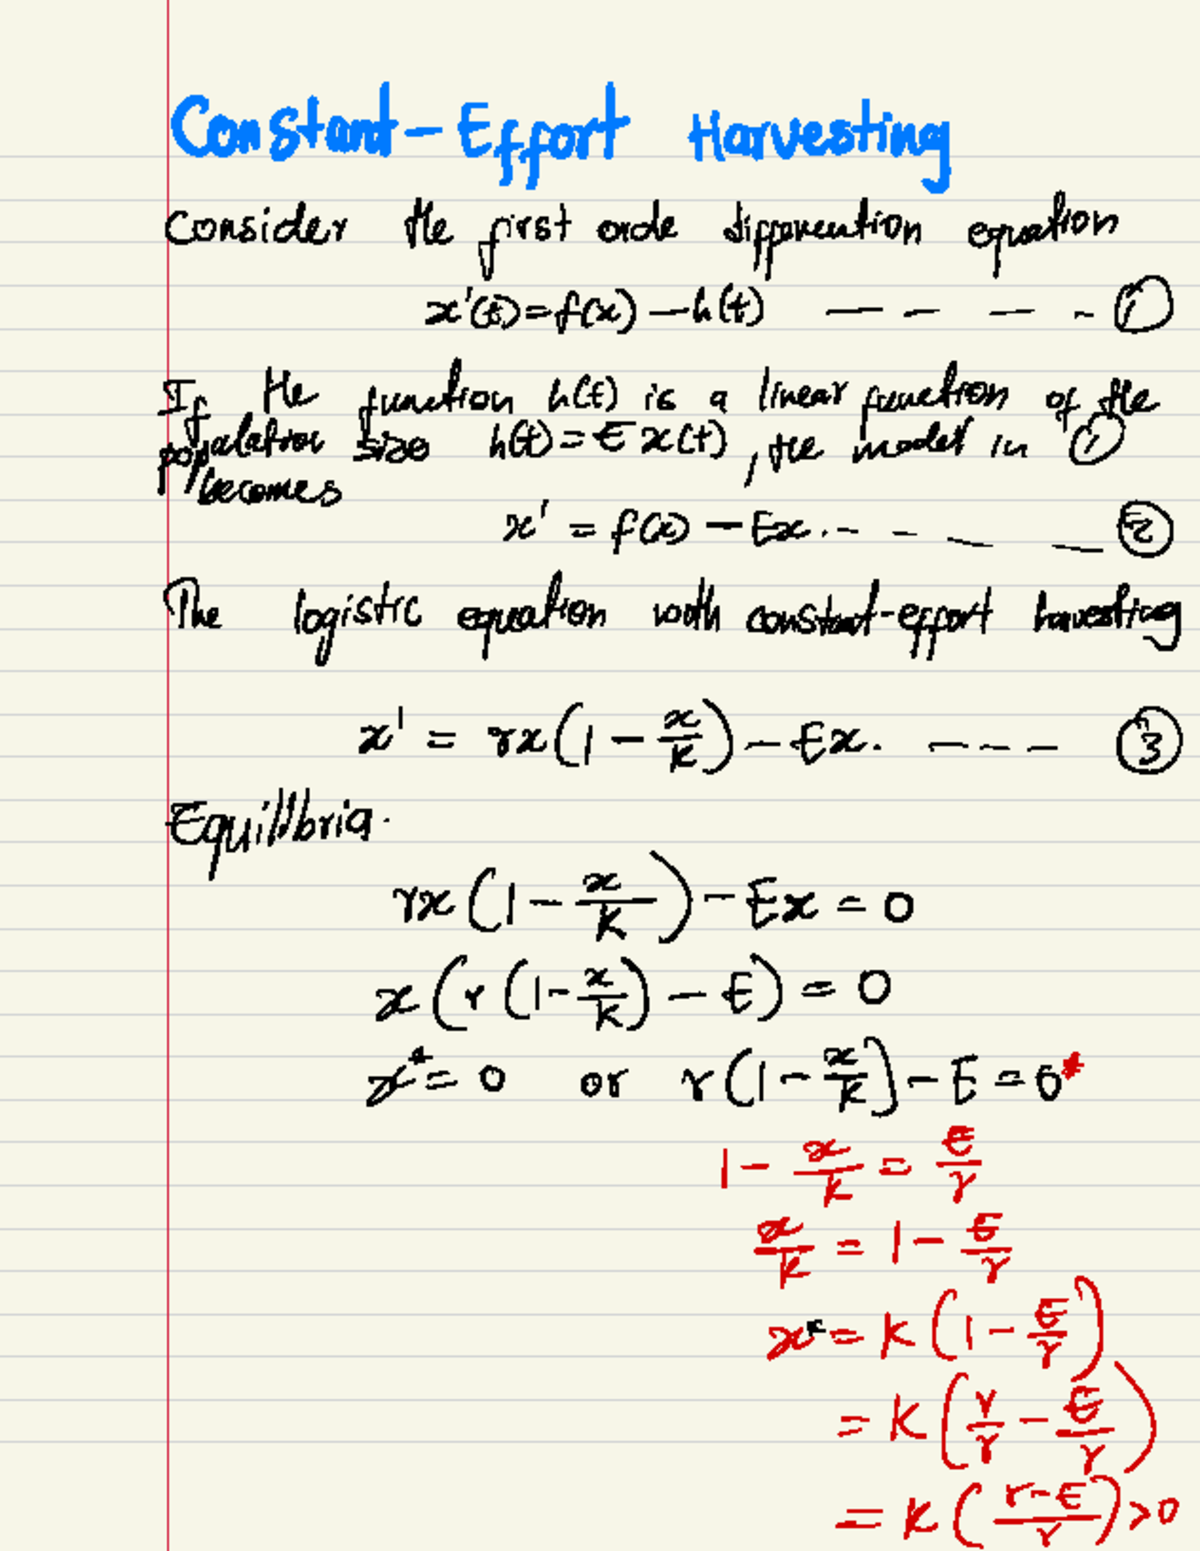 Constant-Effort Harvesting
Consider the first orde differention equation
x'(t)=f(x)-h(t) ---- ①
If the function h(t) is a linear function of the
population size h(t)=Ex(t), the model in ①
becomes
x' = f(x) - Ex. ---- ②
The logistic equation with constant-effort harvesting
x' = rx(1 - x/k) - Ex. ---- ③
Equilibria.
rx(1 - x/k) - Ex = 0
x(r(1 - x/k) - E) = 0
x* = 0 or r(1 - x/k) - E = 0*
1 - x/k = E/r
x/k = 1 - E/r
x* = k(1 - E/r)
= k(r/r - E/r)
= k((r-E)/r) > 0